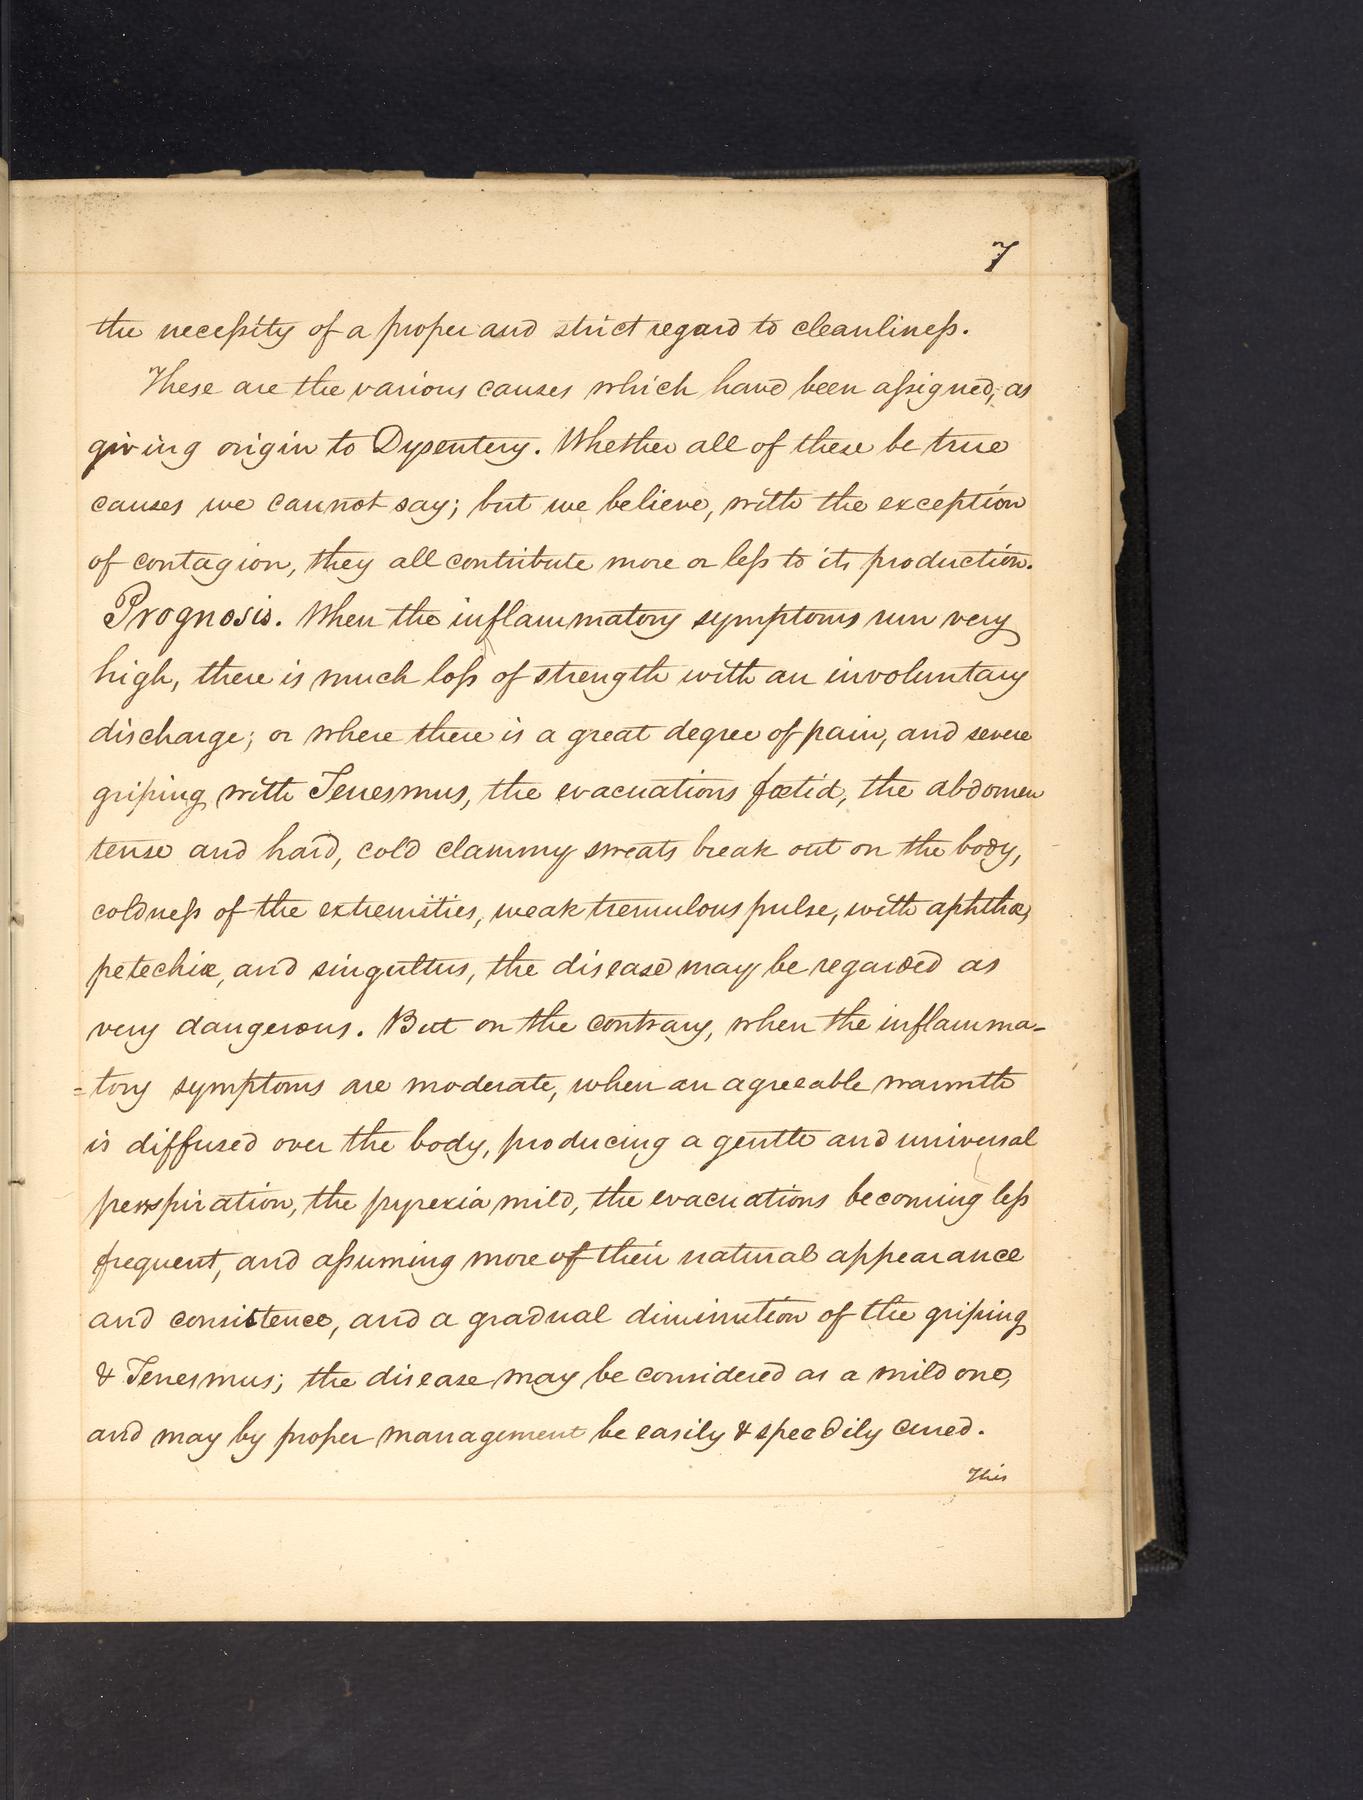 7
the necessity of a proper and strict regard to cleanliness.
These are the various causes which have been assigned, as
giving origin to Dysentery. Whether all of these be true
causes we cannot say; but we believe, with the exception
of contagion, they all contribute more or less to its production.
Prognosis. When the inflammatory symptoms run very
high, there is much loss of strength with an involuntary
discharge; or where there is a great degree of pain, and severe
griping with Tenesmus, the evacuations fœtid, the abdomen
tense and hard, cold clammy sweats break out on the body,
coldness of the extremities, weak tremulous pulse, with aphthæ,
petechiæ, and singultus, the disease may be regarded as
very dangerous. But on the contrary, when the inflamma-
=tory symptoms are moderate, when an agreeable warmth
is diffused over the body, producing a gentle and universal
perspiration, the pyrexia mild, the evacuations becoming less
frequent, and assuming more of their natural appearance
and consistence, and a gradual diminution of the griping
& Tenesmus; the disease may be considered as a mild one,
and may by proper management be easily & speedily cured.
This